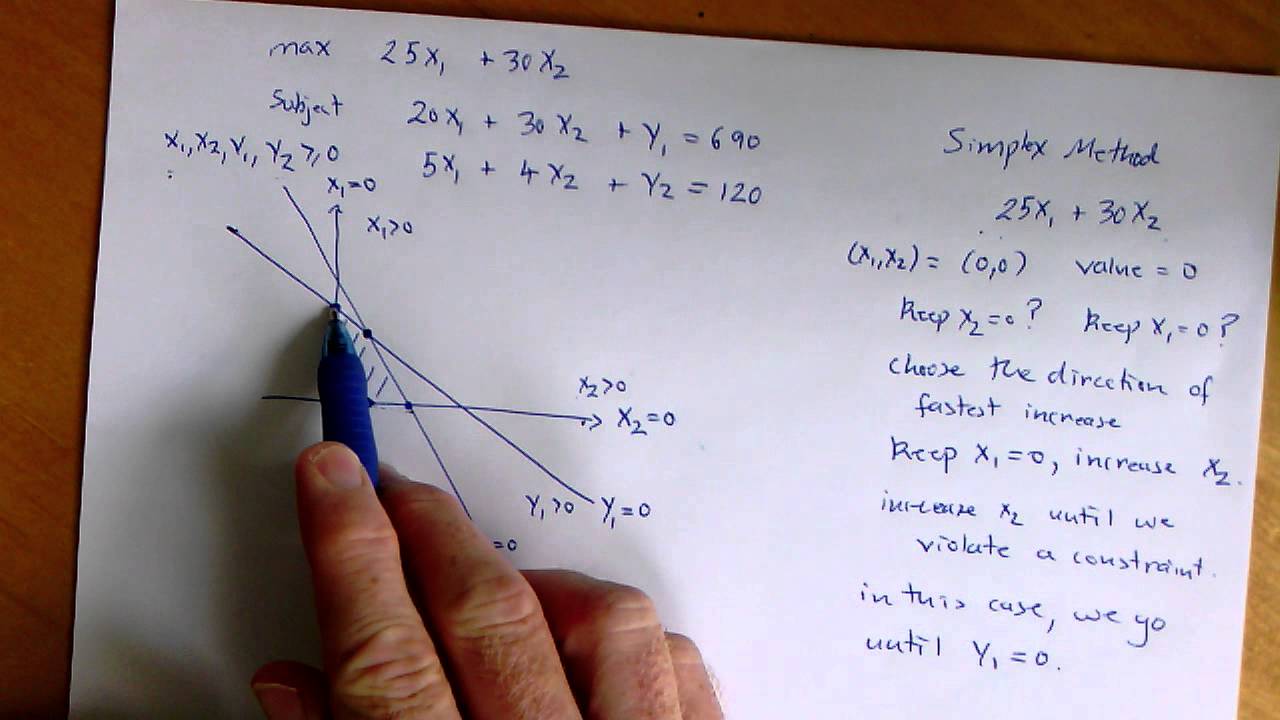 max 25X₁ + 30X₂
Subject 20X₁ + 30X₂ + Y₁ = 690
X₁, X₂, Y₁, Y₂ ⩾ 0
5X₁ + 4X₂ + Y₂ = 120
X₁=0
X₁>0
X₂>0
X₂=0
Y₁>0 Y₁=0
=0
Simplex Method
25X₁ + 30X₂
(X₁,X₂) = (0,0) value = 0
Keep X₂=0? Keep X₁=0?
choose the direction of
fastest increase
Keep X₁=0, increase X₂.
increase X₂ until we
violate a constraint.
in this case, we go
until Y₁=0.